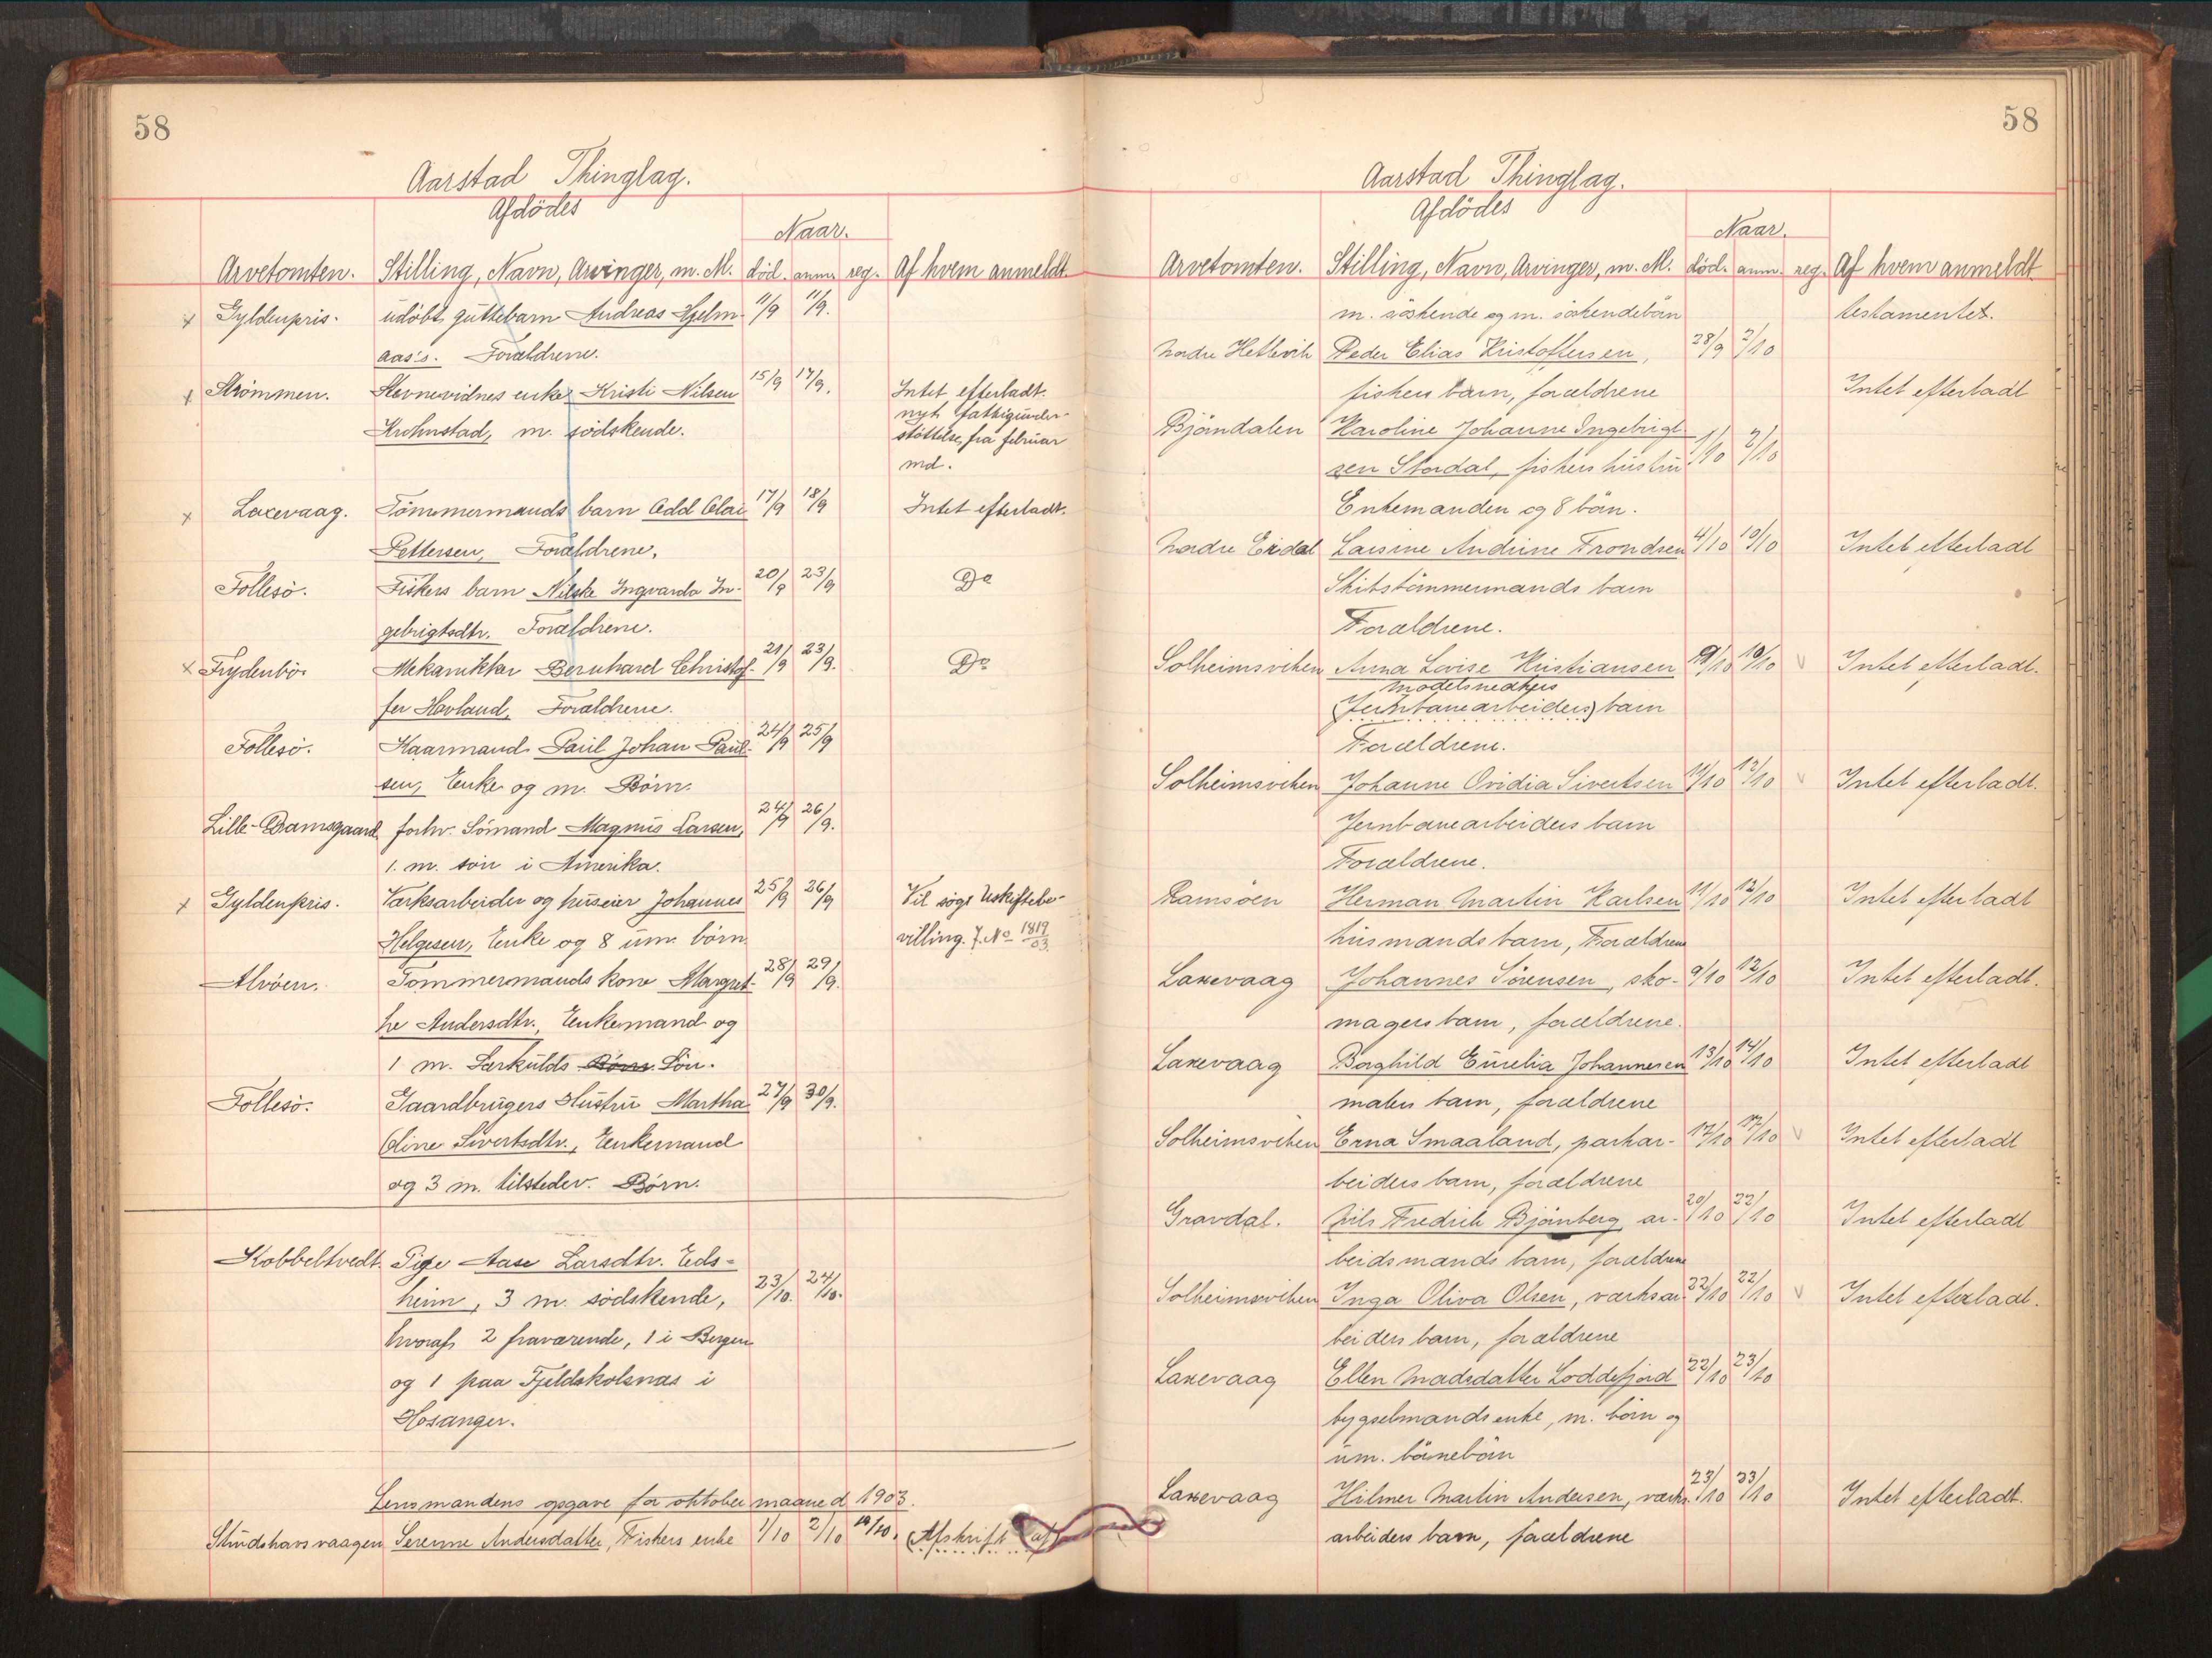 58
Aarstad Thinglag.
Afdödes
Naar.
Arvetomten. Stilling, Navn, Arvinger, m. M. död. anm. reg. Af hvem anmeldt.
x Gyldenpris. udöbt guttebarn Andreas Hjelm- 11/9 11/9.
aas's. Forældrene.
x Strömmen. Stevnevidnes enke Kristi Nilsen 15/9 17/9. Intet efterladt.
nyt fattigunder-
Krohnstad, m. södskende. støttelse, fra februar
md.
x Laxevaag. Tömmermands barn Odd Olai 17/9 18/9 Intet efterladt.
Pettersen, Forældrene.
Follesö. Fiskers barn Nilske Ingvarda In- 20/9 23/9 Do
gebrigtsdtr. Forældrene.
x Frydenbö. Mekanikker Bernhard Christof- 21/9 23/9. Do
fer Havland, Forældrene.
Follesö. Kaarmand Paul Johan Paul- 24/9 25/9
sen, Enke og m. Börn.
Lille-Dramsgaard forhv. Sömand Magnus Larsen, 24/9 26/9.
1. m. sön i Amerika.
x Gyldenpris. Værksarbeider og huseier Johannes 25/9 26/9 Vil søge Uskiftebe-
Helgesen, Enke og 8 um. börn. villing. J. No 1819/03.
Alvöen. Tømmermands kone Margret- 28/9 29/9.
he Andersdtr., Enkemand og
1 m. Særkulds Börn. Sön.
Follesö. Gaardbrugers Hustru Martha 27/9 30/9.
Oline Sivertsdtr., Enkemand
og 3 m. tilstedev. Börn.
Kobbeltvedt. Pige Aase Larsdtr. Eids-
heim, 3 m. södskende, 23/10. 24/10.
hvoraf 2 fraværende, 1 i Bergen
og 1 paa Fjeldskolsnæs i
Hosanger.
Lensmandens opgave for oktober maaned 1903.
Studshavsvaagen Serenne Andersdatter, Fiskers enke 1/10 2/10 14/10. (Afskrift af
58
Aarstad Thinglag.
Afdödes
Naar.
Arvetomten. Stilling, Navn, Arvinger, m. M. död. anm. reg. Af hvem anmeldt
m. söskende og m. söskendebörn testamentet.
Nordre Hetlevik Peder Elias Kristoffersen, 28/9 2/10
fiskers barn, forældrene Intet efterladt
Björndalen Karoline Johanne Ingebrigt-
sen Stordal, fiskers hustru 1/10 2/10
Enkemanden og 8 börn.
Nordre Eidal Larsine Andrine Trondsen 4/10 10/10 Intet efterladt
Skibstömmermands barn
Forældrene.
Solheimsviken Anna Lovise Kristiansen 10/10 Intet efterladt.
modelsnedkers
(Jernbanearbeiders) barn
Forældrene.
Solheimsviken Johanne Ovidia Sivertsen 11/10 12/10 Intet efterladt.
Jernbanearbeiders barn
Forældrene.
Ramsöen Herman Martin Karlsen 11/10 12/10 Intet efterladt
husmands barn, Forældrene
Laxevaag Johannes Sörensen, sko- 9/10 12/10 Intet efterladt.
magers barn, forældrene.
Laxevaag Borghild Eurelia Johannesen 13/10 14/10 Intet efterladt
malers barn, forældrene
Solheimsviken Erna Smaaland, parkar- 17/10 17/10 Intet efterladt
beiders barn, forældrene
Gravdal. Nils Fredrik Björnberg ar- 20/10 22/10 Intet efterladt
beidsmands barn, forældrene
Solheimsviken Inga Oliva Olsen, værksar- 22/10 22/10 Intet efterladt.
beiders barn, forældrene
Laxevaag Ellen Madsdatter Loddefjord 22/10 23/10
bygselmandsenke, m. börn og
um. börnebörn
Laxevaag Hilmer Martin Andersen, værks- 23/10 23/10 Intet efterladt.
arbeiders barn, forældrene